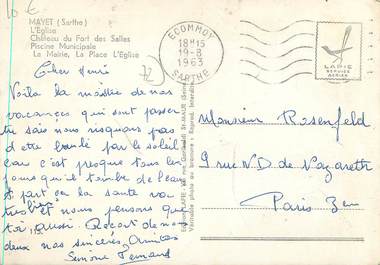 10 €
MAYET (Sarthe)
L'Eglise
Château du Fort des Salles
Piscine Municipale
La Mairie, La Place L'Eglise
ECOMMOY
18H15
19-8
1963
SARTHE
LAPIE
SERVICE
AERIEN
Cher Henri
72
Voilà la moitié de nos
vacances qui sont passées
tu sais nous risquons pas
d'etre brulé par le soleil
car c'est presque tous les
jours qu'il tombe de l'eau
à part ça la santé va
très bien et nous pensons que
toi aussi. Reçoit de nous
deux nos sincères Amitiés
Simone Fernand
Monsieur Rosenfeld
9 rue N.D. de Nazareth
Paris 3em